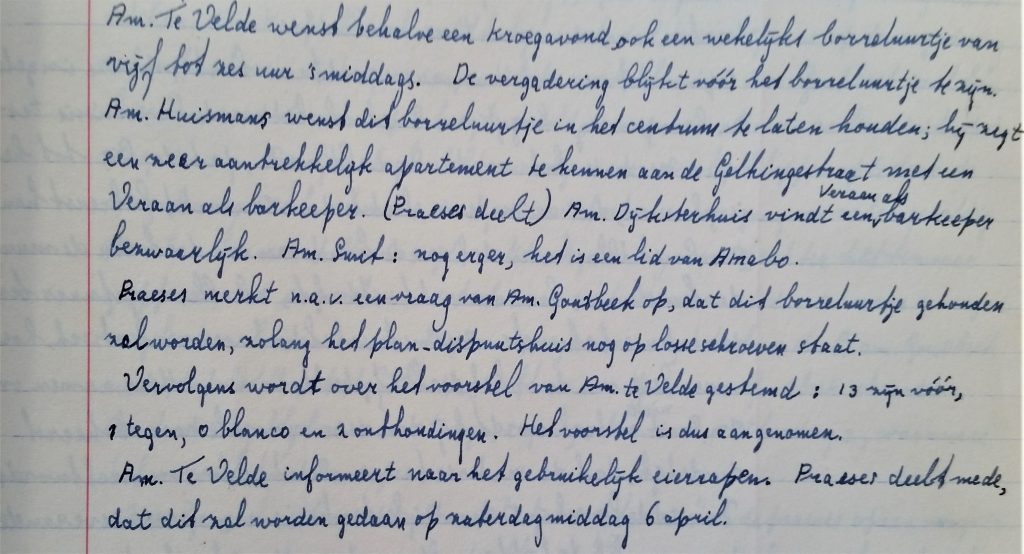 Am. Te Velde wenst behalve een kroegavond ook een wekelijks borreluurtje van
vijf tot zes uur 's middags. De vergadering blijkt vóór het borreluurtje te zijn.
Am. Huismans wenst dit borreluurtje in het centrum te laten houden; hij zegt
een zeer aantrekkelijk apartement te kennen aan de Gelkingestraat met een
Veraan als
Veraan als barkeeper. (Praeses deelt) Am. Dijksterhuis vindt een barkeeper
bezwaarlijk. Am. Smit: nog erger, het is een lid van Amabo.
Praeses merkt n.a.v. een vraag van Am. Gonsbeek op, dat dit borreluurtje gehouden
zal worden, zolang het plan-dispuutshuis nog op losse schroeven staat.
Vervolgens wordt over het voorstel van Am. te Velde gestemd: 13 zijn vóór,
1 tegen, 0 blanco en 2 onthoudingen. Het voorstel is dus aangenomen.
Am. Te Velde informeert naar het gebruikelijk eierrapen. Praeses deelt mede,
dat dit zal worden gedaan op zaterdagmiddag 6 april.